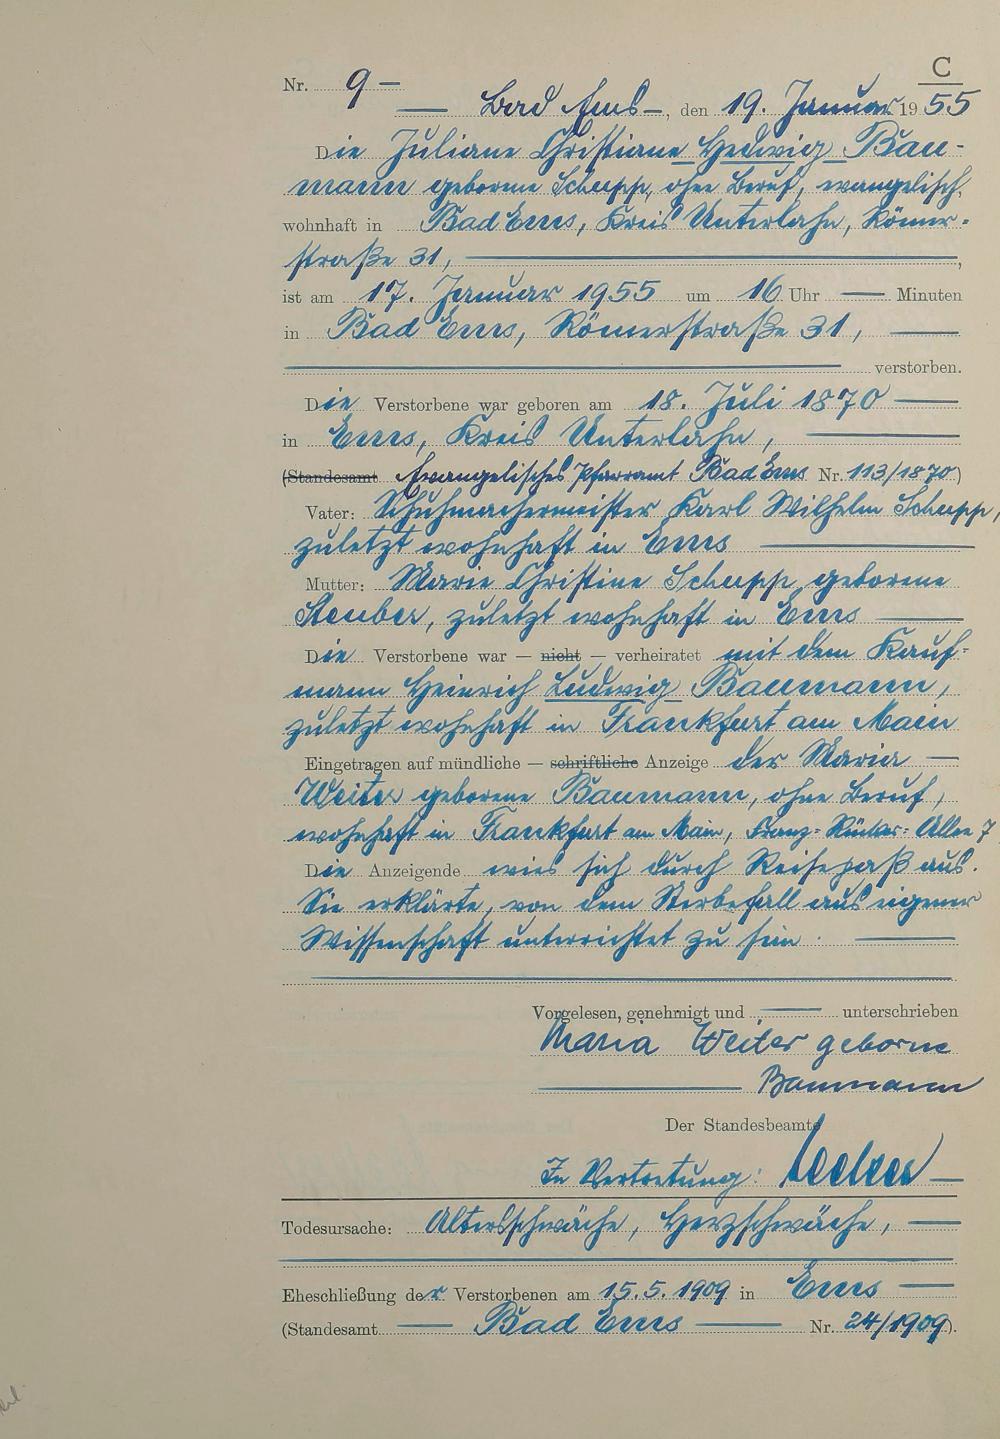 C
Nr. 9 —
— Bad Ems —, den 19. Januar 1955
Die Juliane Christiane Hedwig Bau-
mann geborene Schupp, ohne Beruf, evangelisch,
wohnhaft in Bad Ems, Kreis Unterlahn, Römer-
straße 31, —,
ist am 17. Januar 1955 um 16 Uhr — Minuten
in Bad Ems, Römerstraße 31, —
— verstorben.
Die Verstorbene war geboren am 18. Juli 1870 —
in Ems, Kreis Unterlahn, —
(Standesamt Evangelisches Pfarramt Bad Ems Nr. 113/1870)
Vater: Schuhmachermeister Karl Wilhelm Schupp,
zuletzt wohnhaft in Ems —
Mutter: Marie Christine Schupp geborene
Steuber, zuletzt wohnhaft in Ems —
Die Verstorbene war — nicht — verheiratet mit dem Kauf-
mann Heinrich Ludwig Baumann,
zuletzt wohnhaft in Frankfurt am Main
Eingetragen auf mündliche — schriftliche Anzeige der Maria —
Weiter geborene Baumann, ohne Beruf,
wohnhaft in Frankfurt am Main, Franz-Rücker-Allee 7
Die Anzeigende wies sich durch Reisepaß aus.
Sie erklärte, von dem Sterbefall aus eigener
Wissenschaft unterrichtet zu sein. —
Vorgelesen, genehmigt und — unterschrieben
Maria Weiter geborne
— Baumann
Der Standesbeamte
In Vertretung: —
Todesursache: Altersschwäche, Herzschwäche, —
Eheschließung der Verstorbenen am 15.5.1909 in Ems —
(Standesamt — Bad Ems — Nr. 24/1909).